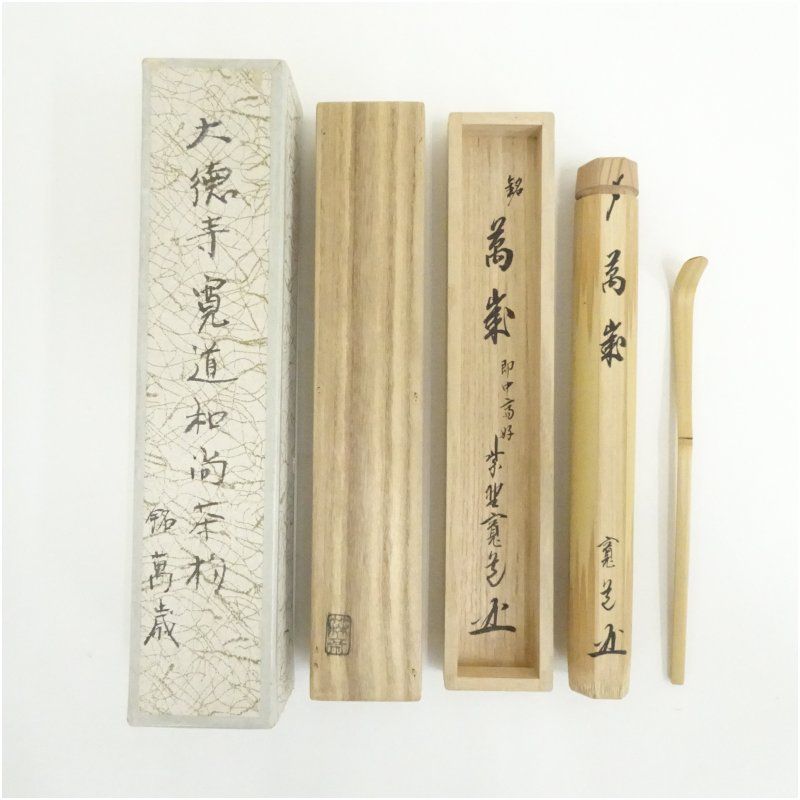 大徳寺寛道和尚茶杓
銘 萬歳
銘
萬歳
即中斎好
紫野寛道
萬歳
寛道